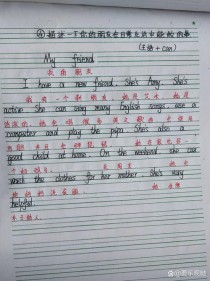 ④描述一下你的朋友在日常生活中能做的事
(主语+can)
My friend
我的朋友
I have a new friend. She's Amy. She's
我有一个新朋友。她是艾米。她是
active. She can sing many English songs, use a
活泼的。她会唱很多英文歌曲,
computer and play the pipa. She's also a
good child at home. On the weekend she can
个好孩子。在周末
wash the clothes for her mother. She's very
给她妈妈洗衣服。她
helpful.